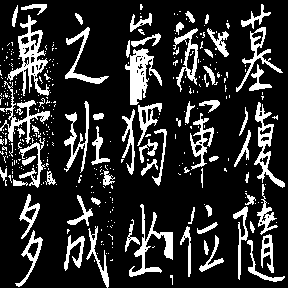 墓復隨
於軍位
崇獨坐
之班成
雪多